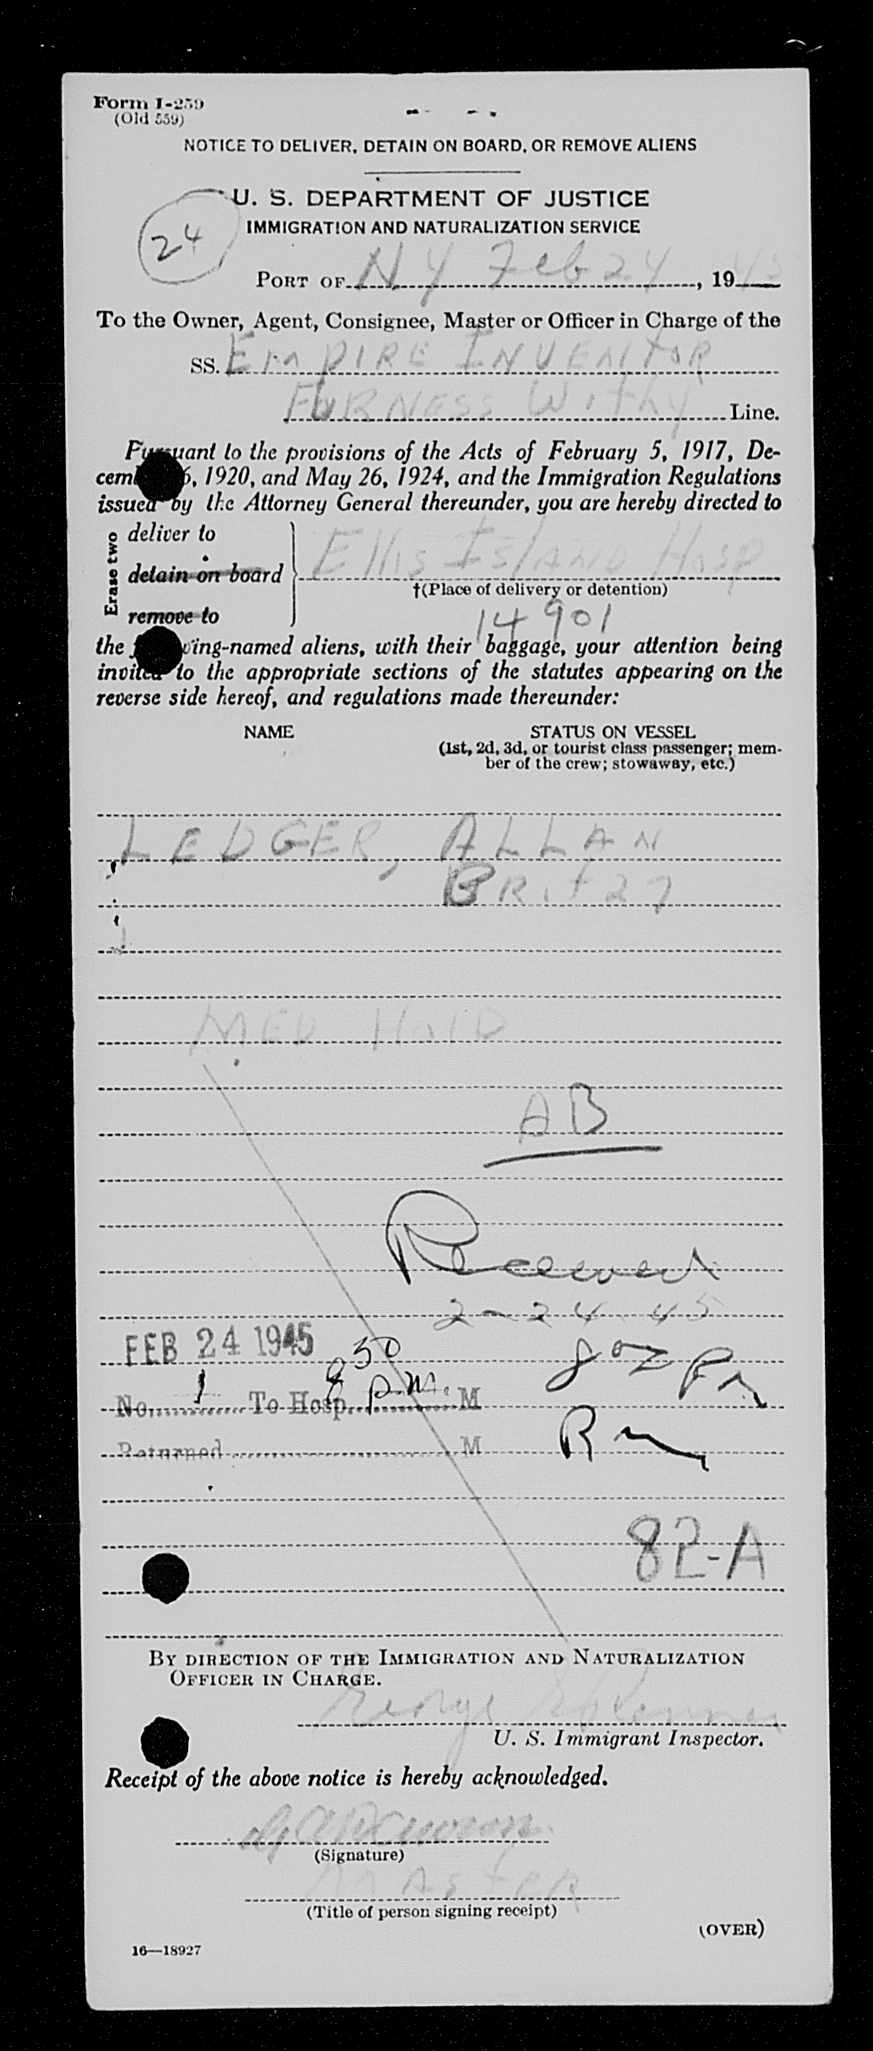 Form I-259
(Old 559)
NOTICE TO DELIVER, DETAIN ON BOARD, OR REMOVE ALIENS
U. S. DEPARTMENT OF JUSTICE
IMMIGRATION AND NATURALIZATION SERVICE
24
PORT OF NY Feb 24, 1945
To the Owner, Agent, Consignee, Master or Officer in Charge of the
SS. EMPIRE INVENTOR
FURNESS Withy Line.
Pursuant to the provisions of the Acts of February 5, 1917, De-
cem 6, 1920, and May 26, 1924, and the Immigration Regulations
issued by the Attorney General thereunder, you are hereby directed to
Erase two
deliver to
detain on board
remove to
Ellis ISLAND Hosp
†(Place of delivery or detention)
14901
the following-named aliens, with their baggage, your attention being
invited to the appropriate sections of the statutes appearing on the
reverse side hereof, and regulations made thereunder:
NAME STATUS ON VESSEL
(1st, 2d, 3d, or tourist class passenger; mem-
ber of the crew; stowaway, etc.)
LEDGER, ALLAN
BRit 27
MED. HOLD
AB
Received
2-24-45
FEB 24 1945
8 02 Pm
No. 1 To Hosp. 8 50 p.m. M
Returned M
Rm
82-A
BY DIRECTION OF THE IMMIGRATION AND NATURALIZATION
OFFICER IN CHARGE.
George
U. S. Immigrant Inspector.
Receipt of the above notice is hereby acknowledged.
(Signature)
MASTER
(Title of person signing receipt)
(OVER)
16—18927